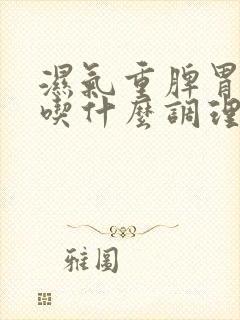 濕氣重脾胃
喫什麼調理
雅圖